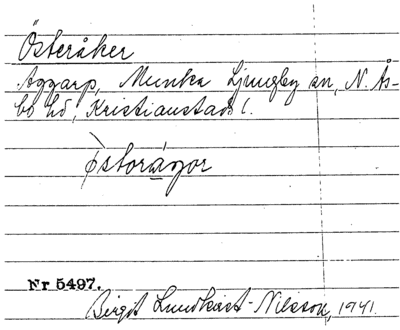 Österåker
Aggarp, Munka Ljungby sn, N. Ås-
bo hd, Kristianstads l.
östorágor
Nr 5497.
Birgit Lundkvist-Nilsson, 1941.